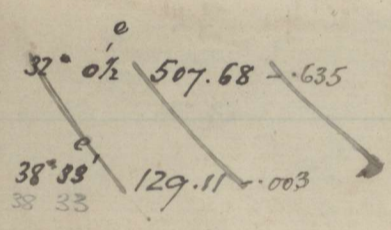 e
32° 0½' 507.68 - .635
e
38° 33' 129.11 - .003
38 33